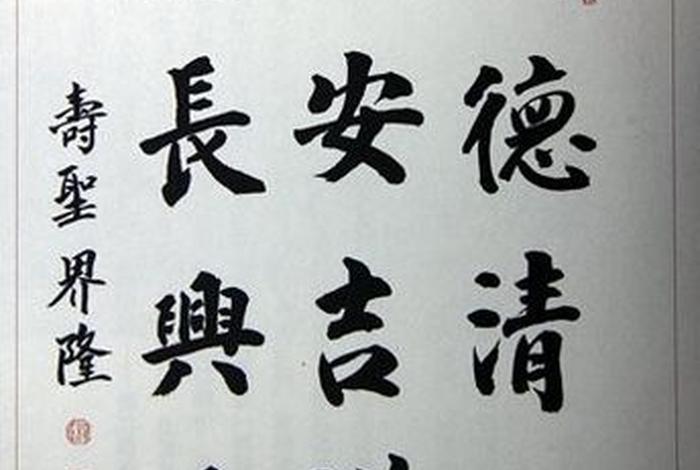 德清
安吉
長興
壽聖界隆